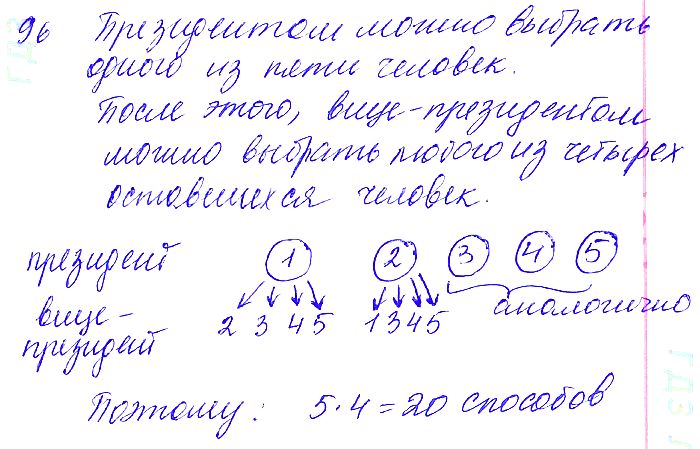 96 Президентом можно выбрать
одного из пяти человек.
После этого, вице-президентом
можно выбрать любого из четырех
оставшихся человек.
президент 1 2 3 4 5
вице-
президент
2 3 4 5 1 3 4 5 аналогично
Поэтому: 5·4=20 способов
ГДЗ
ГДЗ